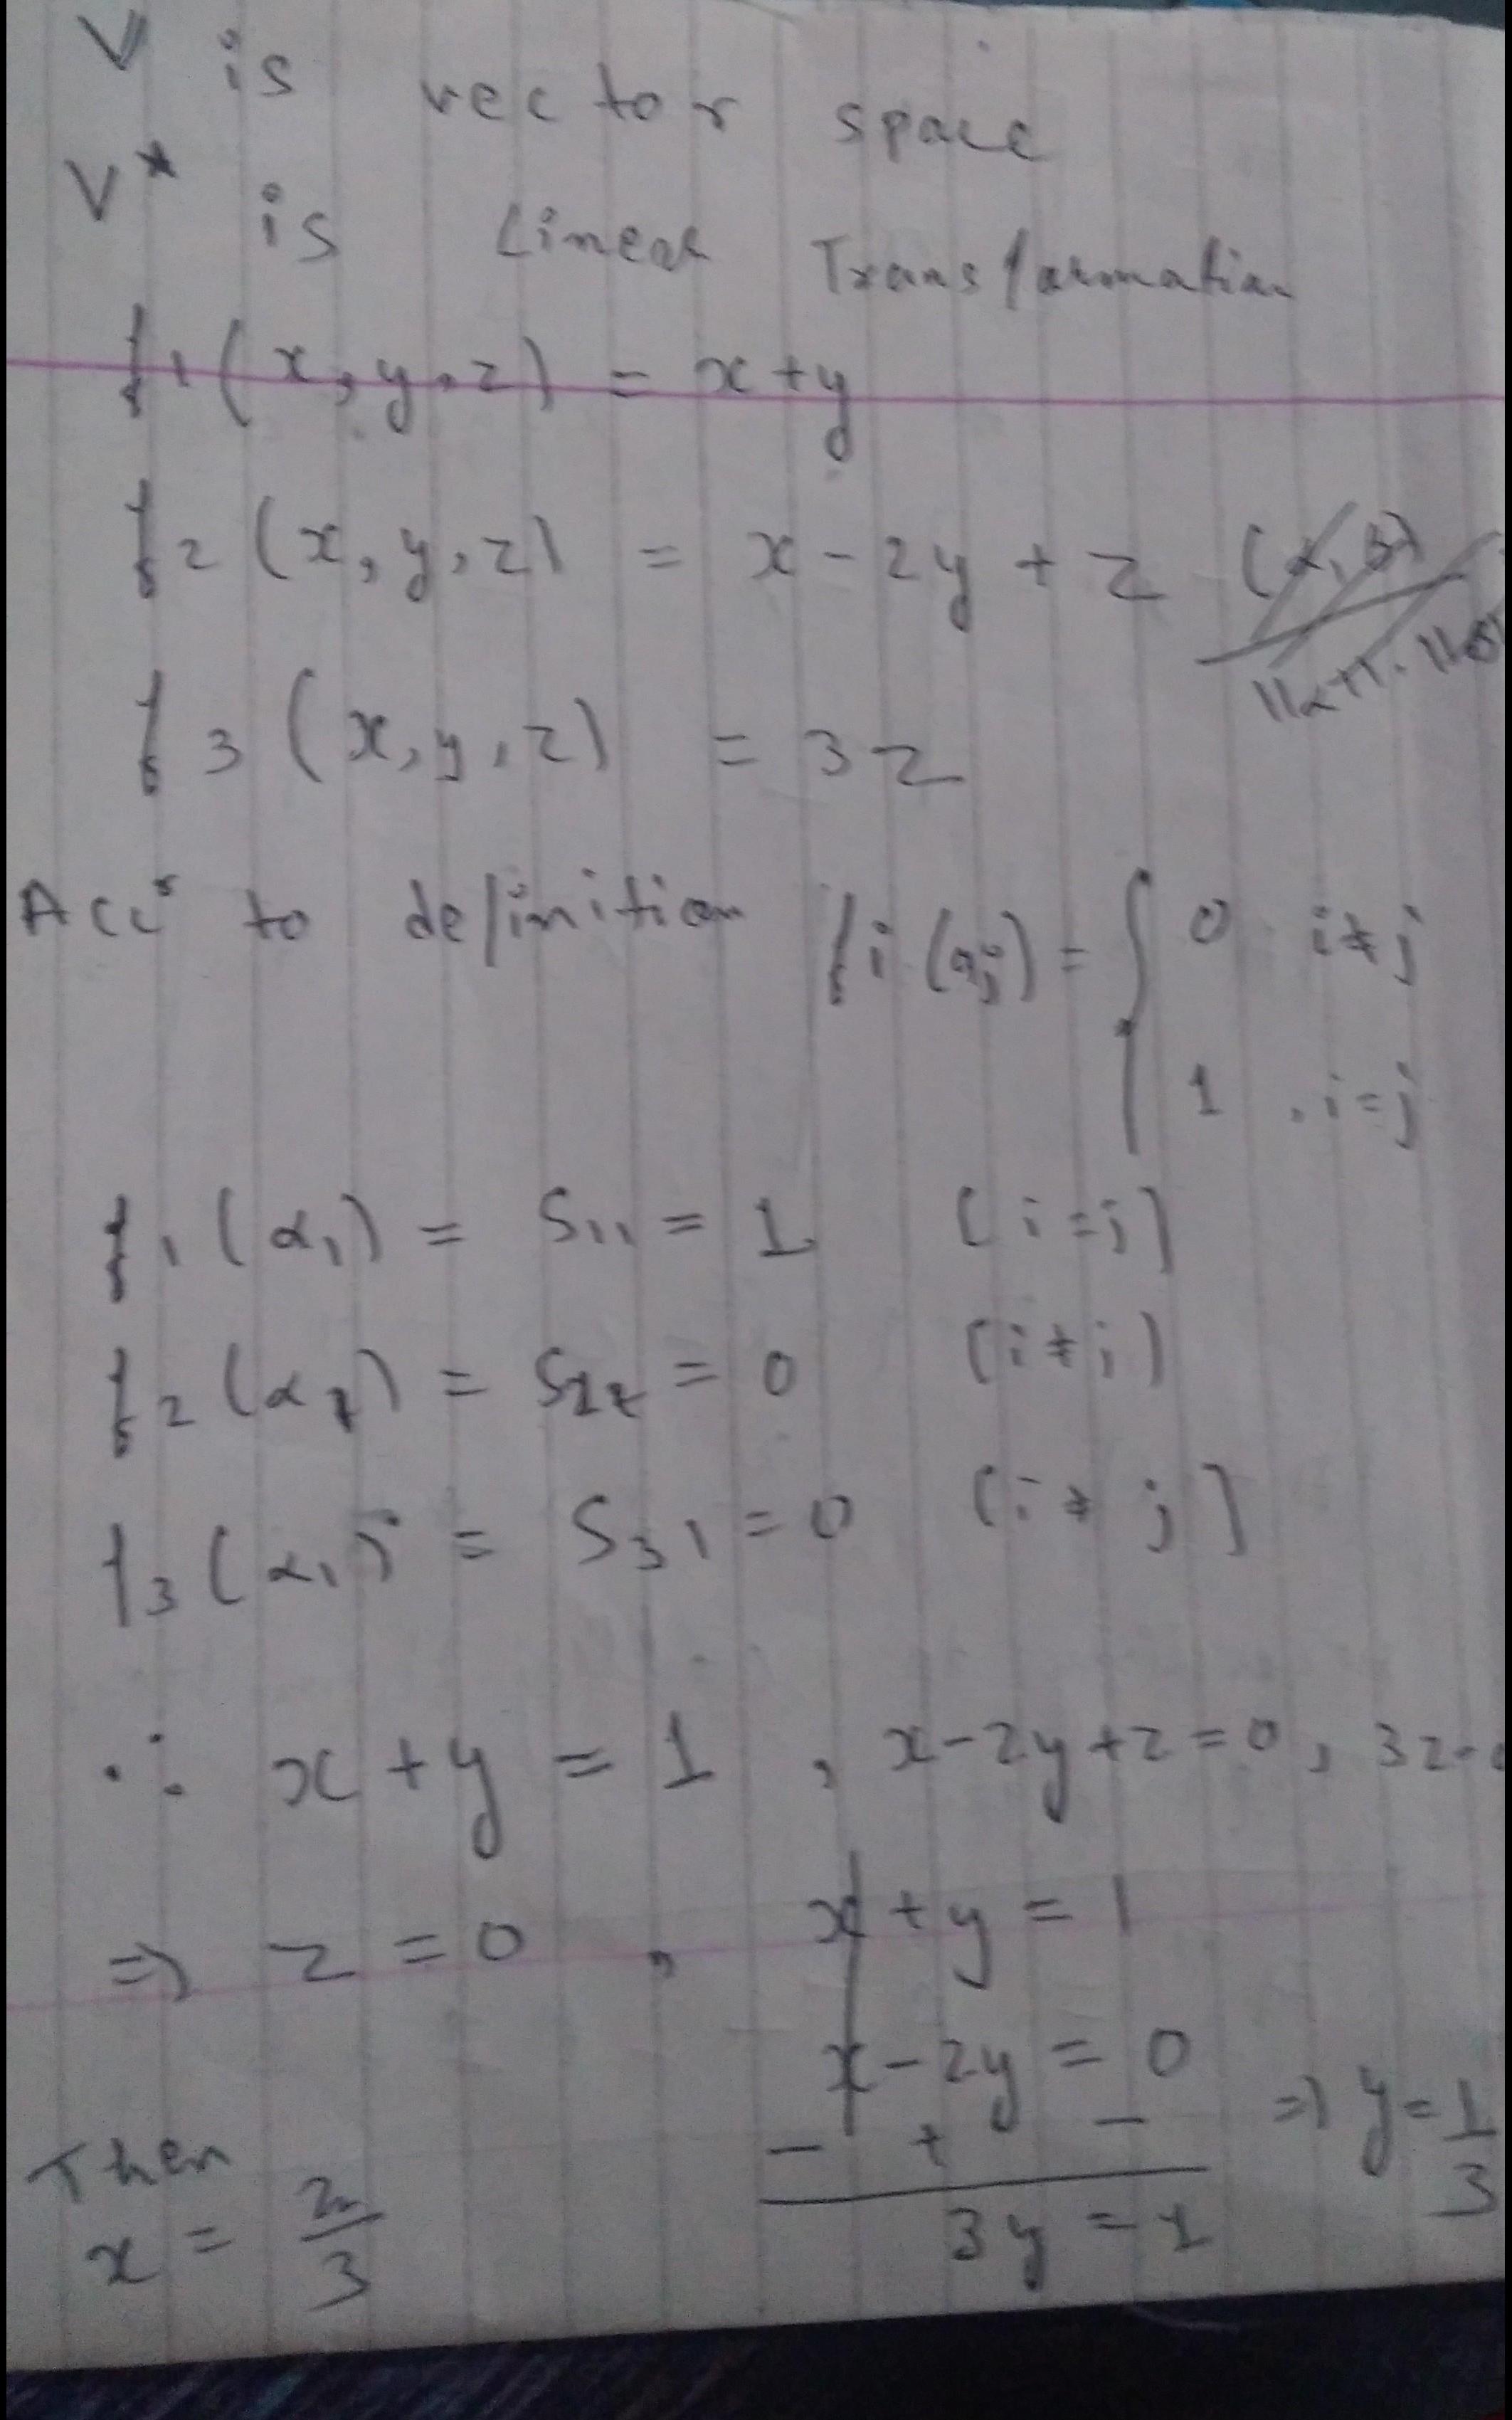 V is vector space
V* is Linear Transformation
f1(x,y,z) = x+y
f2(x,y,z) = x-2y+z
f3(x,y,z) = 3z
Accr to definition fi(αj) = { 0 i≠j
1 , i=j
f1(α1) = S11 = 1 [i=j]
f2(α1) = = 0 [i≠j]
f3(α1) = S31 = 0 [i≠j]
∴ x+y = 1 , x-2y+z=0, 3z=0
⇒ z=0 , x+y = 1
x-2y = 0
- + -
⇒ y=1/3
3y = 1
Then
x = 2/3